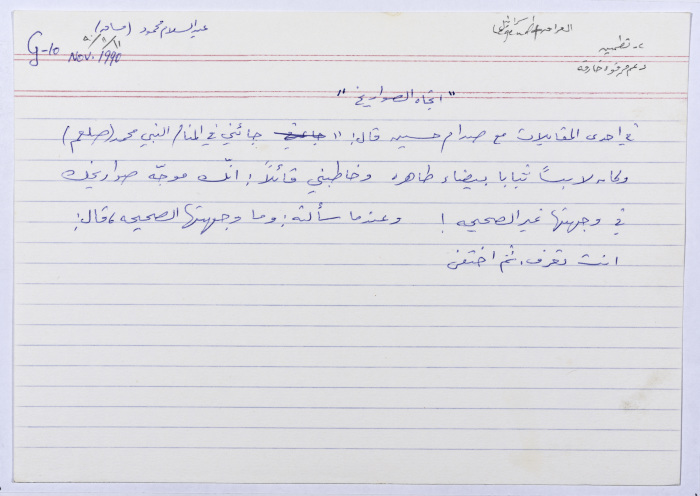 عبد السلام محمود
G-10
Nov. 1990
٢- تطمين
دعم و قوة خارقة
"اتجاه الصواريخ"
في احدى المقابلات مع صدام حسين قال: "جائني في المنام النبي محمد (صلعم)
وكان لابسًا ثيابا بيضاء طاهره وخاطبني قائلاً: انّك موجّه صواريخك
في وجهتها غير الصحيحه! وعندما سألته: وما وجهتها الصحيحه، قال:
انت تعرف، ثم اختفى